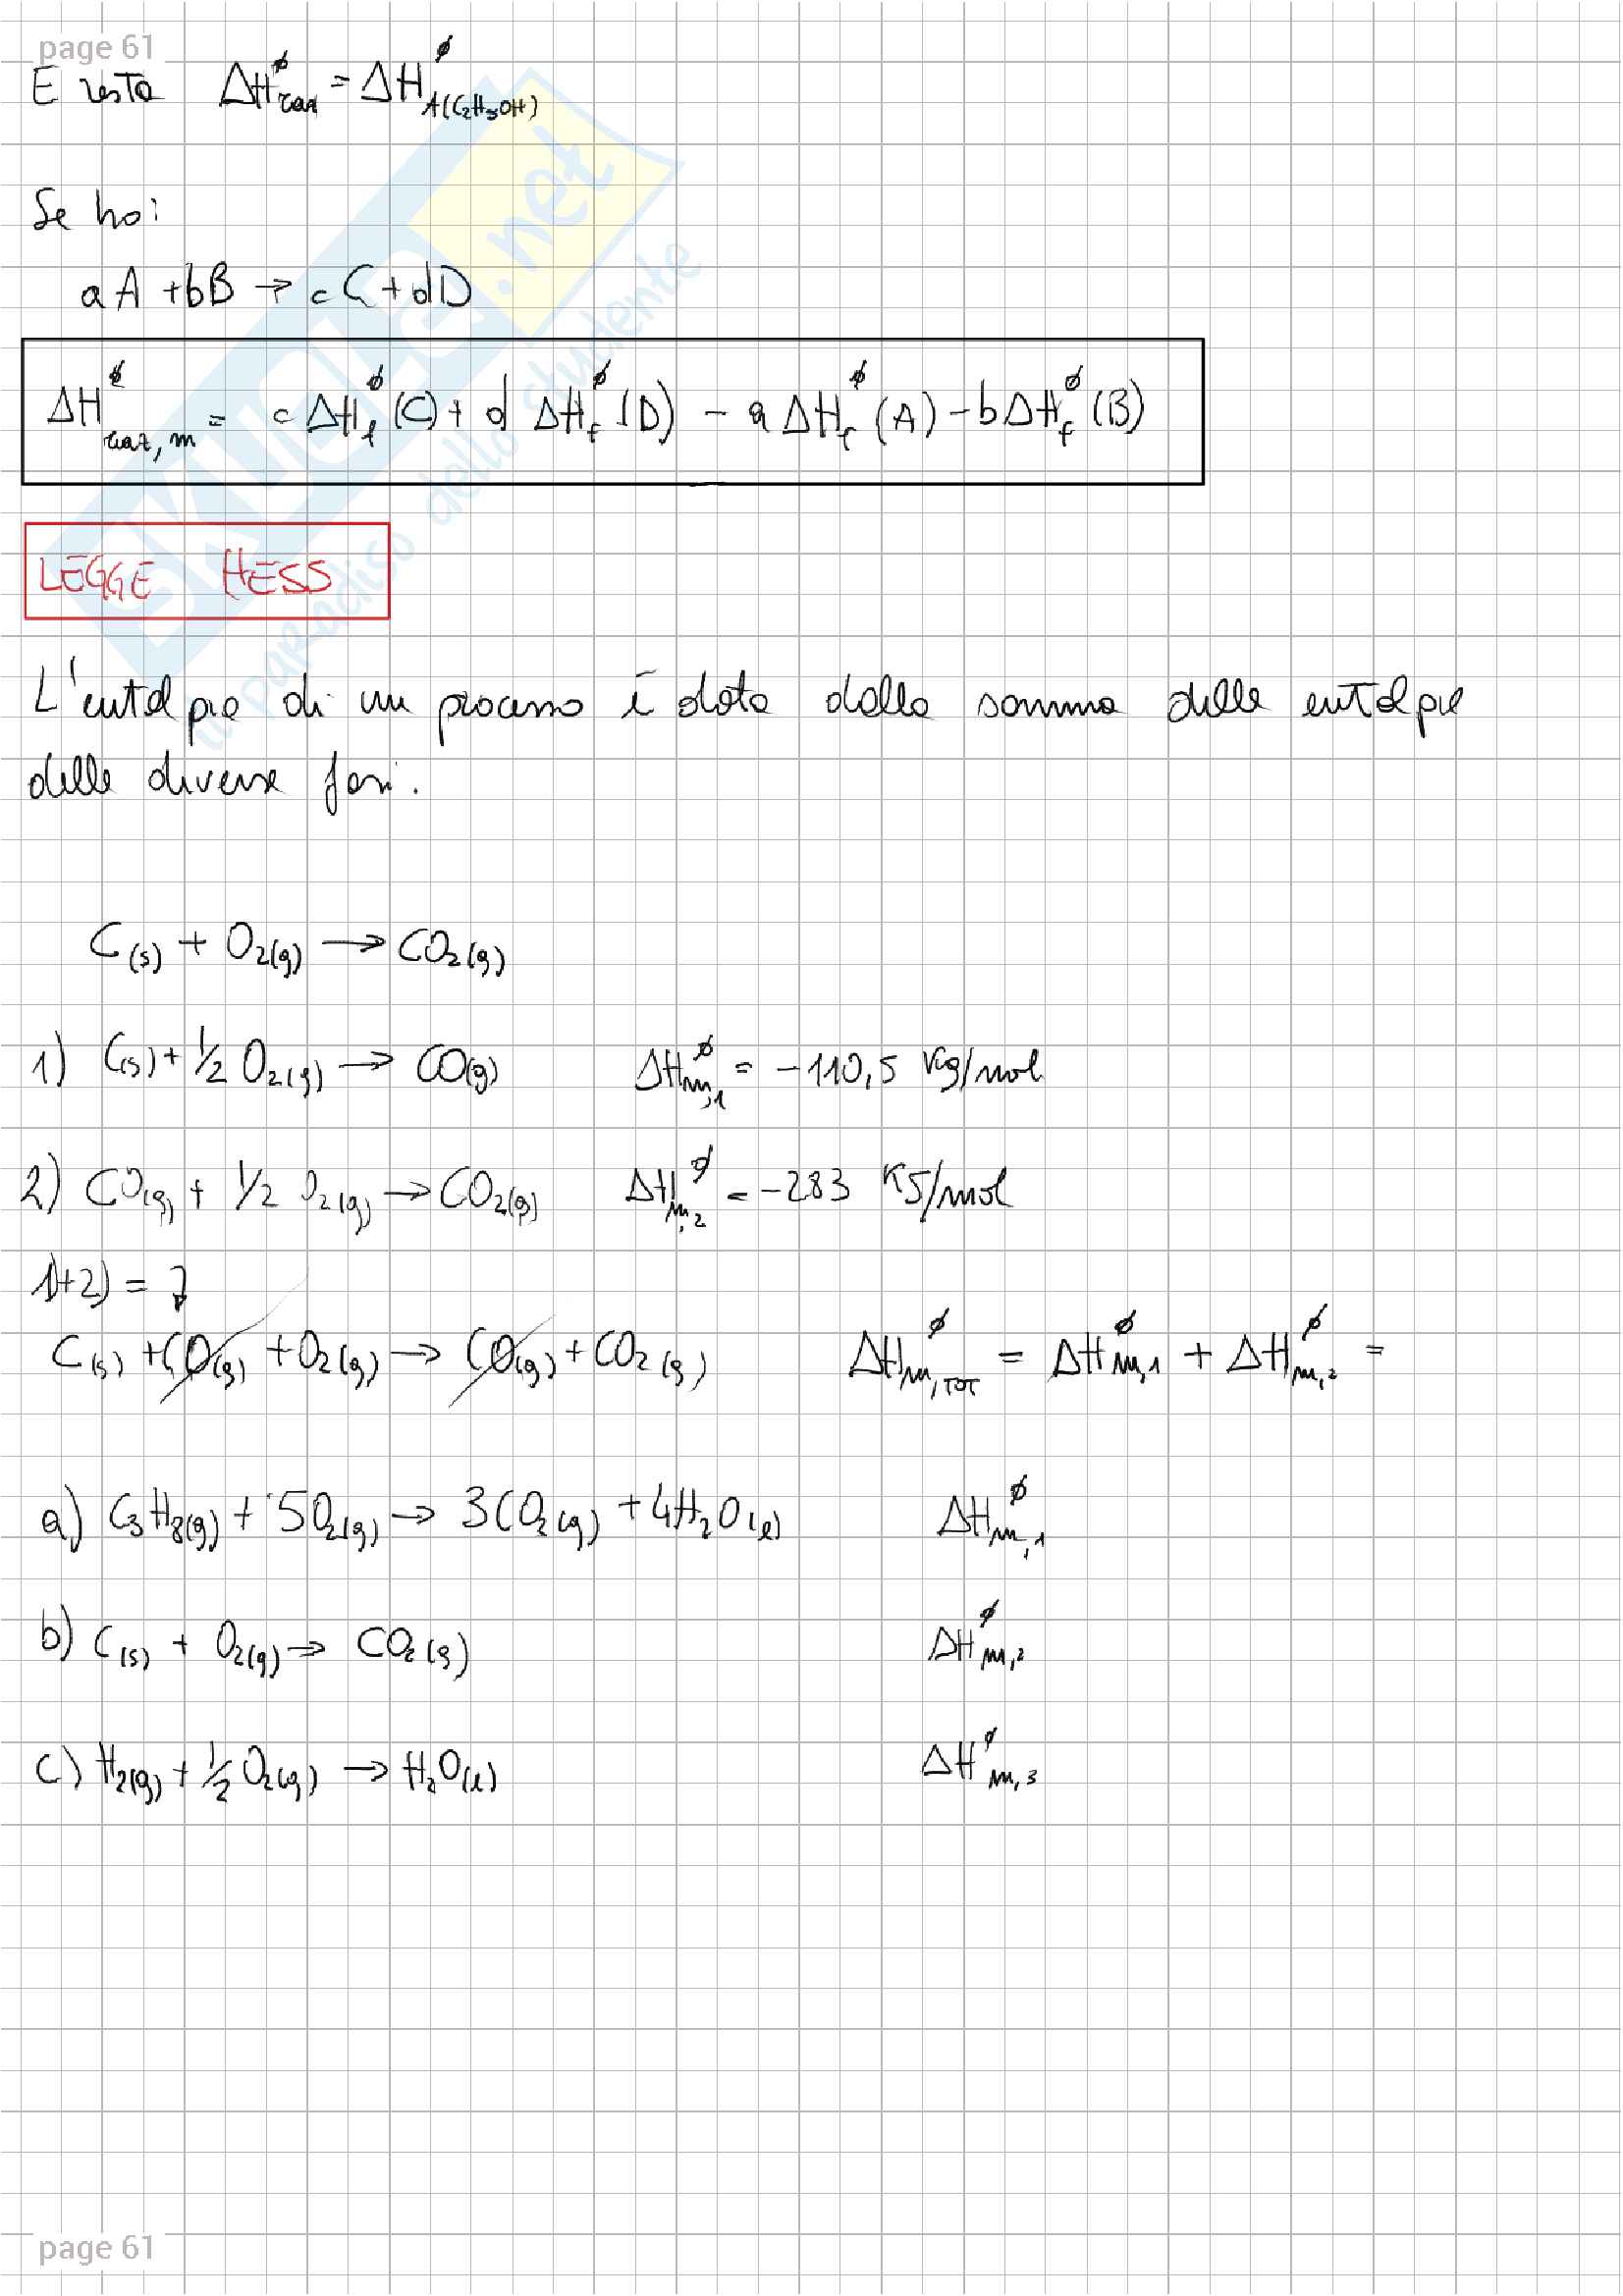 page 61
E resta ΔH°reaz = ΔH°A(C2H5OH)
Se hoi
aA + bB → cC + dD
ΔH°reaz,m = cΔH°f(C) + d ΔH°f(D) - aΔH°f(A) - bΔH°f(B)
LEGGE HESS
L'entalpia di un processo è data dalla somma delle entalpie
delle diverse fasi.
C(s) + O2(g) → CO2(g)
1) C(s) + 1/2 O2(g) → CO(g) ΔH°m,1 = -110,5 Kg/mol
2) CO(g) + 1/2 O2(g) → CO2(g) ΔH°m,2 = -283 KJ/mol
1)+2) =
C(s) + CO(g) + O2(g) → CO(g) + CO2(g) ΔH°m,TOT = ΔH°m,1 + ΔH°m,2 =
a) C3H8(g) + 5O2(g) → 3CO2(g) + 4H2O(l) ΔH°m,1
b) C(s) + O2(g) → CO2(g) ΔH°m,2
c) H2(g) + 1/2 O2(g) → H2O(l) ΔH°m,3
page 61
SKUOLA.net
il paradiso dello studente